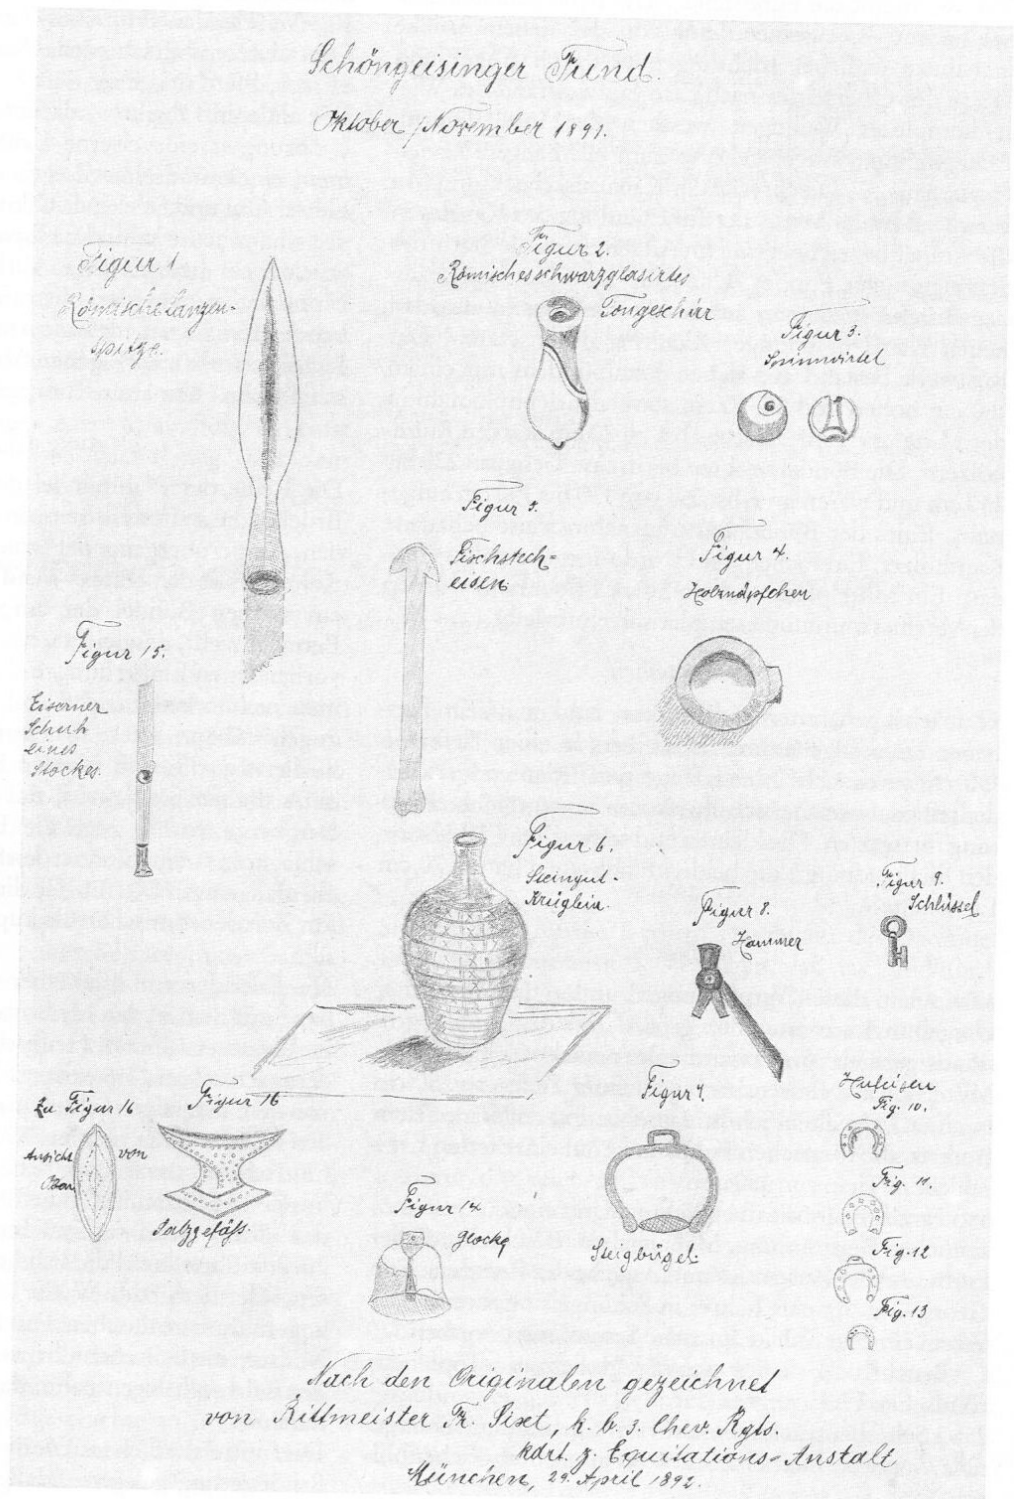 Schöngeisinger Fund.
Oktober/November 1891.
Figur 1
Römische Lanzen-
spitze.
Figur 2.
Römisches schwarzglasirtes
Tongeschirr
Figur 3.
Spinnwirtel
Figur 5.
Fischstech-
eisen.
Figur 4.
Holznäpfchen
Figur 15.
Eiserner
Schuh
eines
Stockes.
Figur 6.
Steingut-
Krüglein.
Figur 8.
Hammer
Figur 9.
Schlüssel
Zu Figur 16
Ansicht von
Oben
Figur 16
Salzgefäss.
Figur 14
Glocke
Figur 7.
Steigbügel.
Hufeisen
Fig. 10.
Fig. 11.
Fig. 12
Fig. 13
Nach den Originalen gezeichnet
von Rittmeister Fr. Sixt, k. b. 3. Chev. Rgts.
kdrt. z. Equitations-Anstalt
München, 29. April 1892.